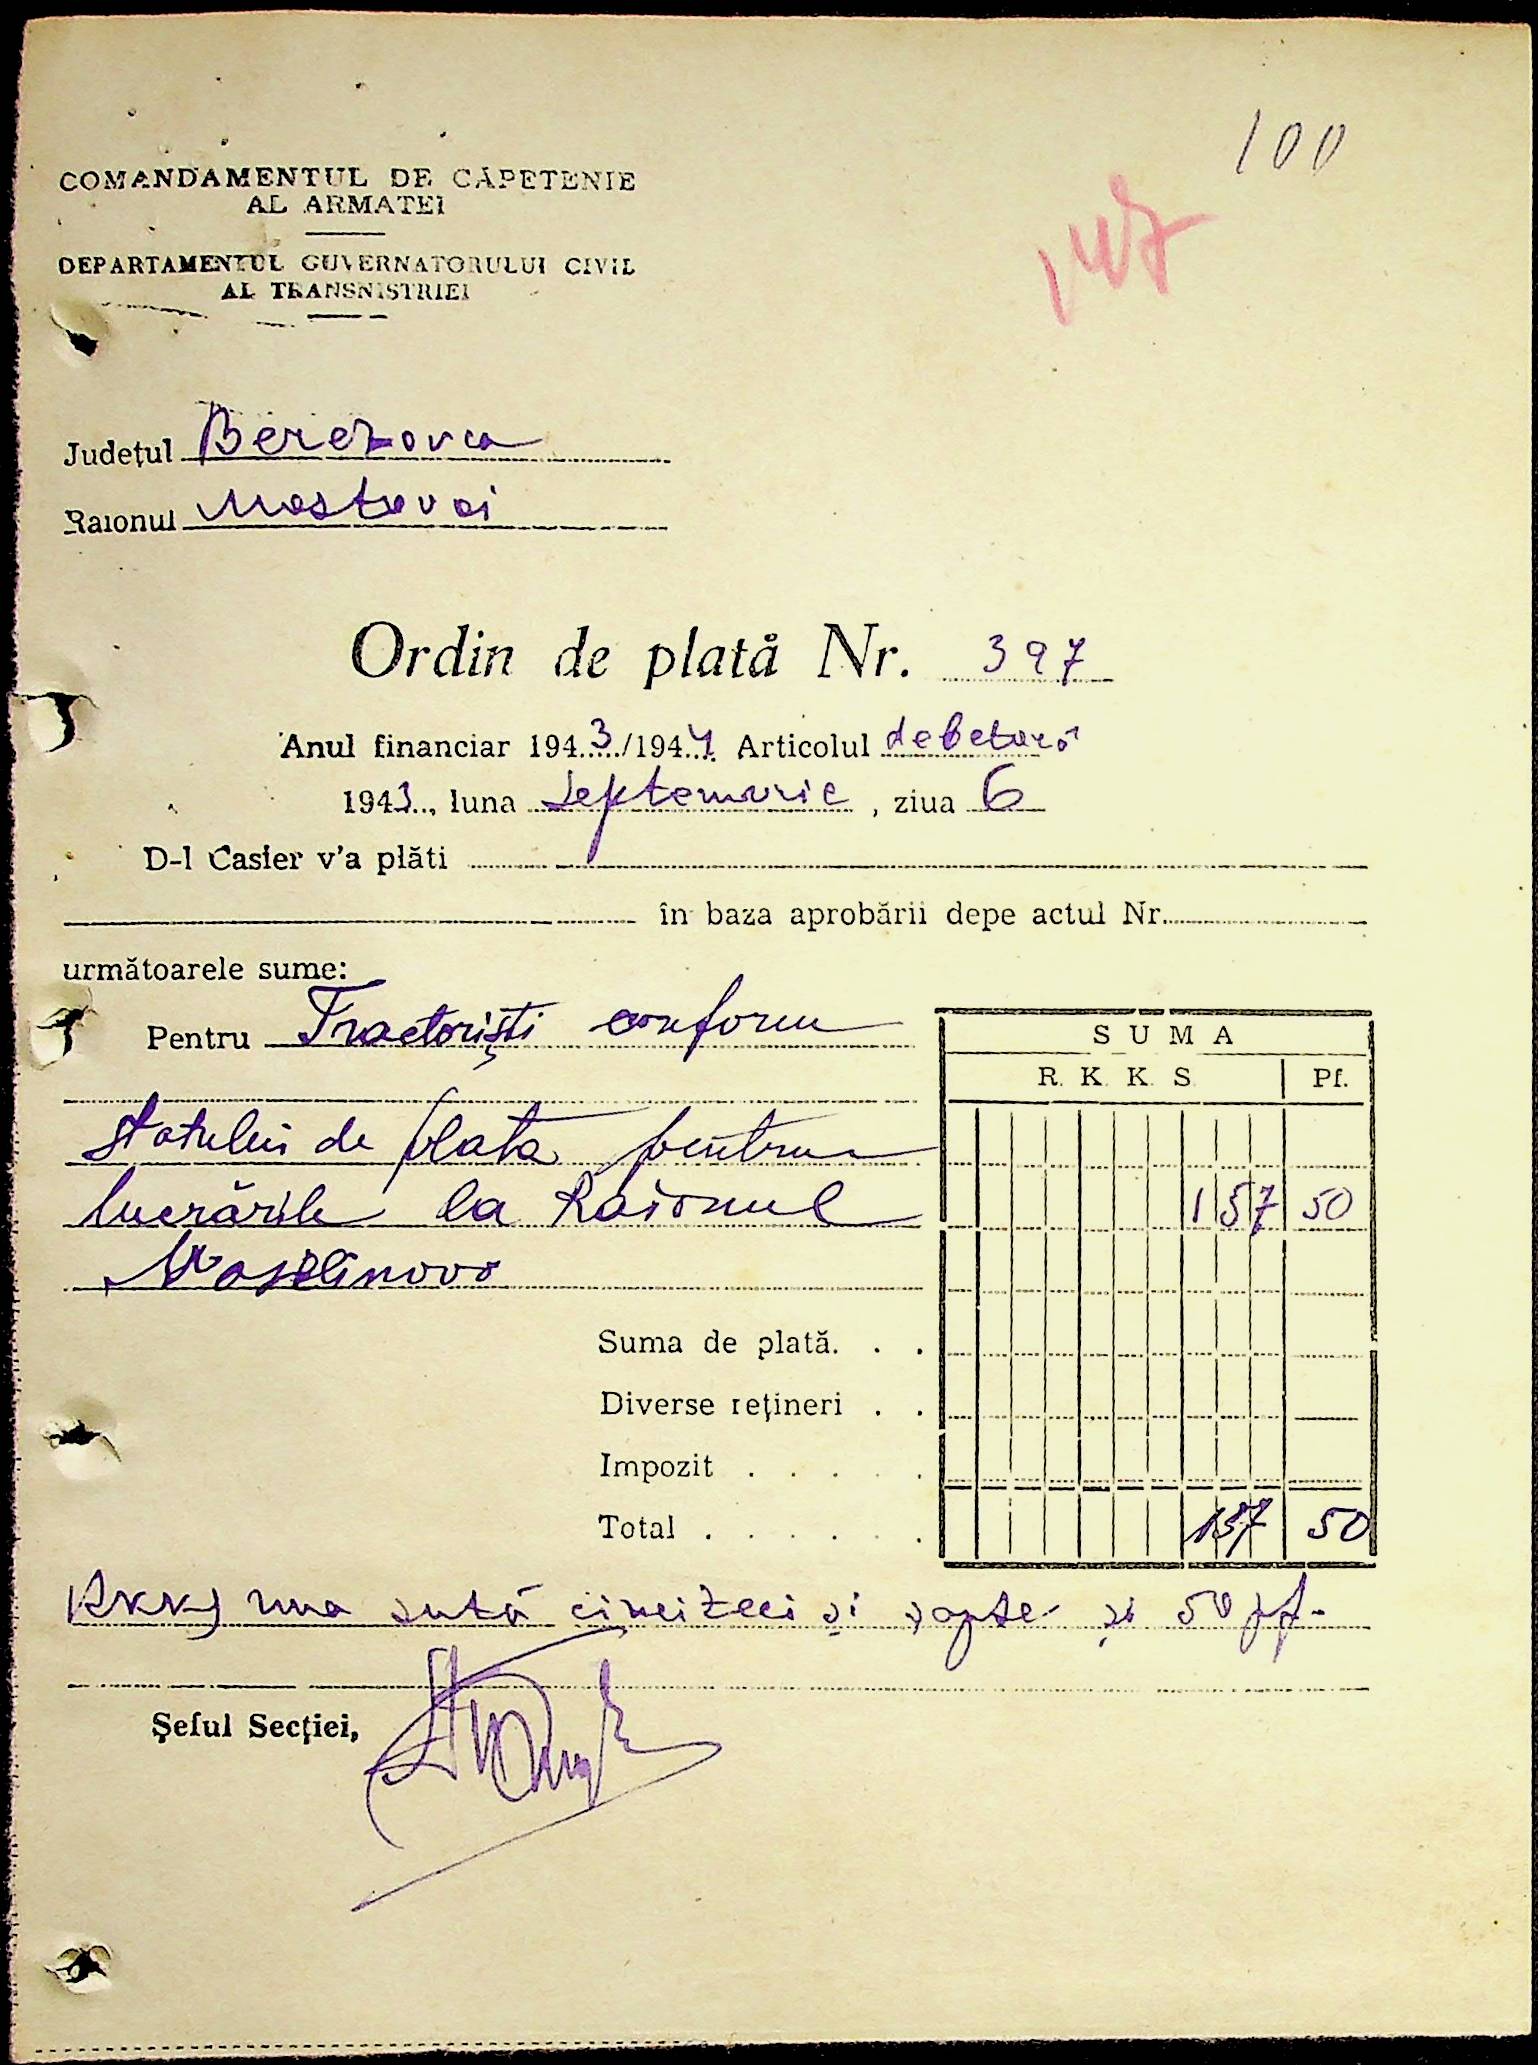 100
COMANDAMENTUL DE CAPETENIE
AL ARMATEI
DEPARTAMENTUL GUVERNATORULUI CIVIL
AL TRANSNISTRIEI
Județul Berezovca
Raionul Mostovoi
Ordin de plată Nr. 397
Anul financiar 1943/1944 Articolul
1943, luna Septemvrie, ziua 6
D-l Casier v'a plăti
în baza aprobării depe actul Nr.
următoarele sume:
Pentru Tractoriști conform
statului de plata pentru
lucrările la Raionul
SUMA
R. K. K. S. Pf.
157 50
Suma de plată. . .
Diverse rețineri . .
Impozit . . . . .
Total . . . . . . 157 50
RKKS una sută cincizeci și șapte și 50 pf.-
Șeful Secției,